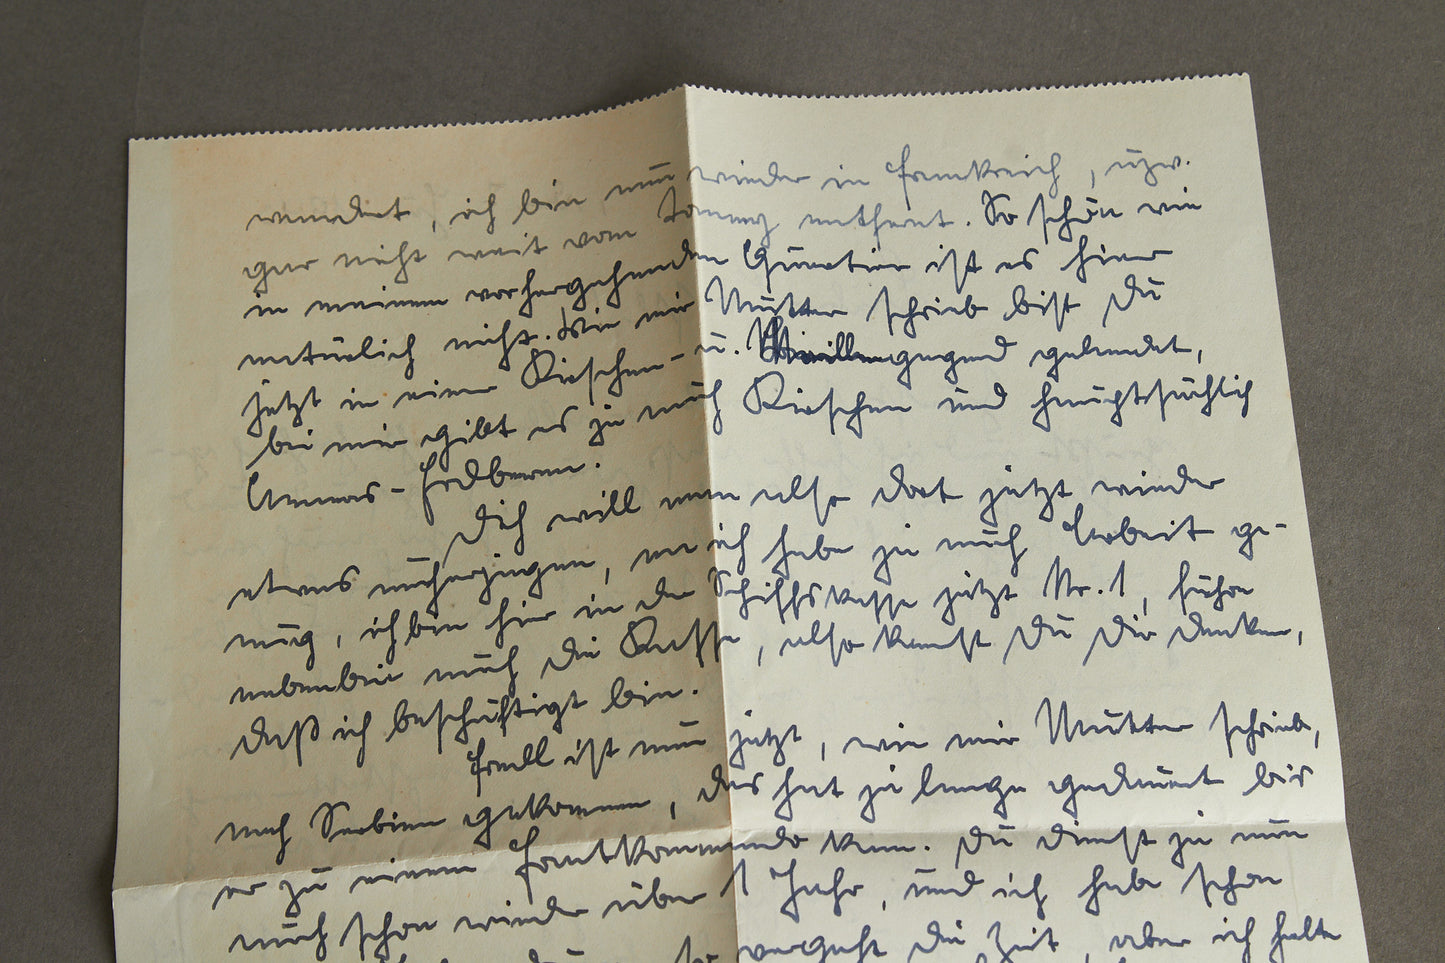 wundert, ich bin, nun wieder in Frankreich, uzw.
gar nicht weit vom Tommy entfernt. So schön wie
in meinem vorhergehenden Quartier ist es hier
natürlich nicht. Wie mir Mutter schrieb bist Du
jetzt in einer Kirschen- u. Marillengegend gelandet,
bei mir gibt es ja auch Kirschen und hauptsächlich
Ananas-Erdbeeren.
Dich will man also dort jetzt wieder
etwas näherziehen, na ich habe ja auch Arbeit ge-
nug, ich bin hier in der Schiffskasse jetzt Nr. 1, führe
nebenbei auch die Kasse, also kannst Du Dir denken,
daß ich beschäftigt bin.
Fredl ist nun jetzt, wie mir Mutter schrieb,
nach Serbien gekommen, das hat ja lange gedauert bis
er zu einem Frontkommando kam. Du dienst ja nun
auch schon wieder über 1 Jahr, und ich habe schon
vergeht die Zeit, aber ich hätte